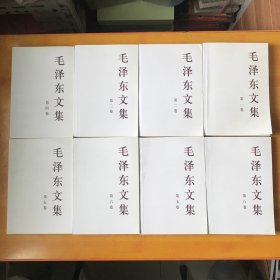 毛泽东文集
第四卷
毛泽东文集
第三卷
毛泽东文集
第二卷
毛泽东文集
第一卷
毛泽东文集
第五卷
毛泽东文集
第六卷
毛泽东文集
第七卷
毛泽东文集
第八卷